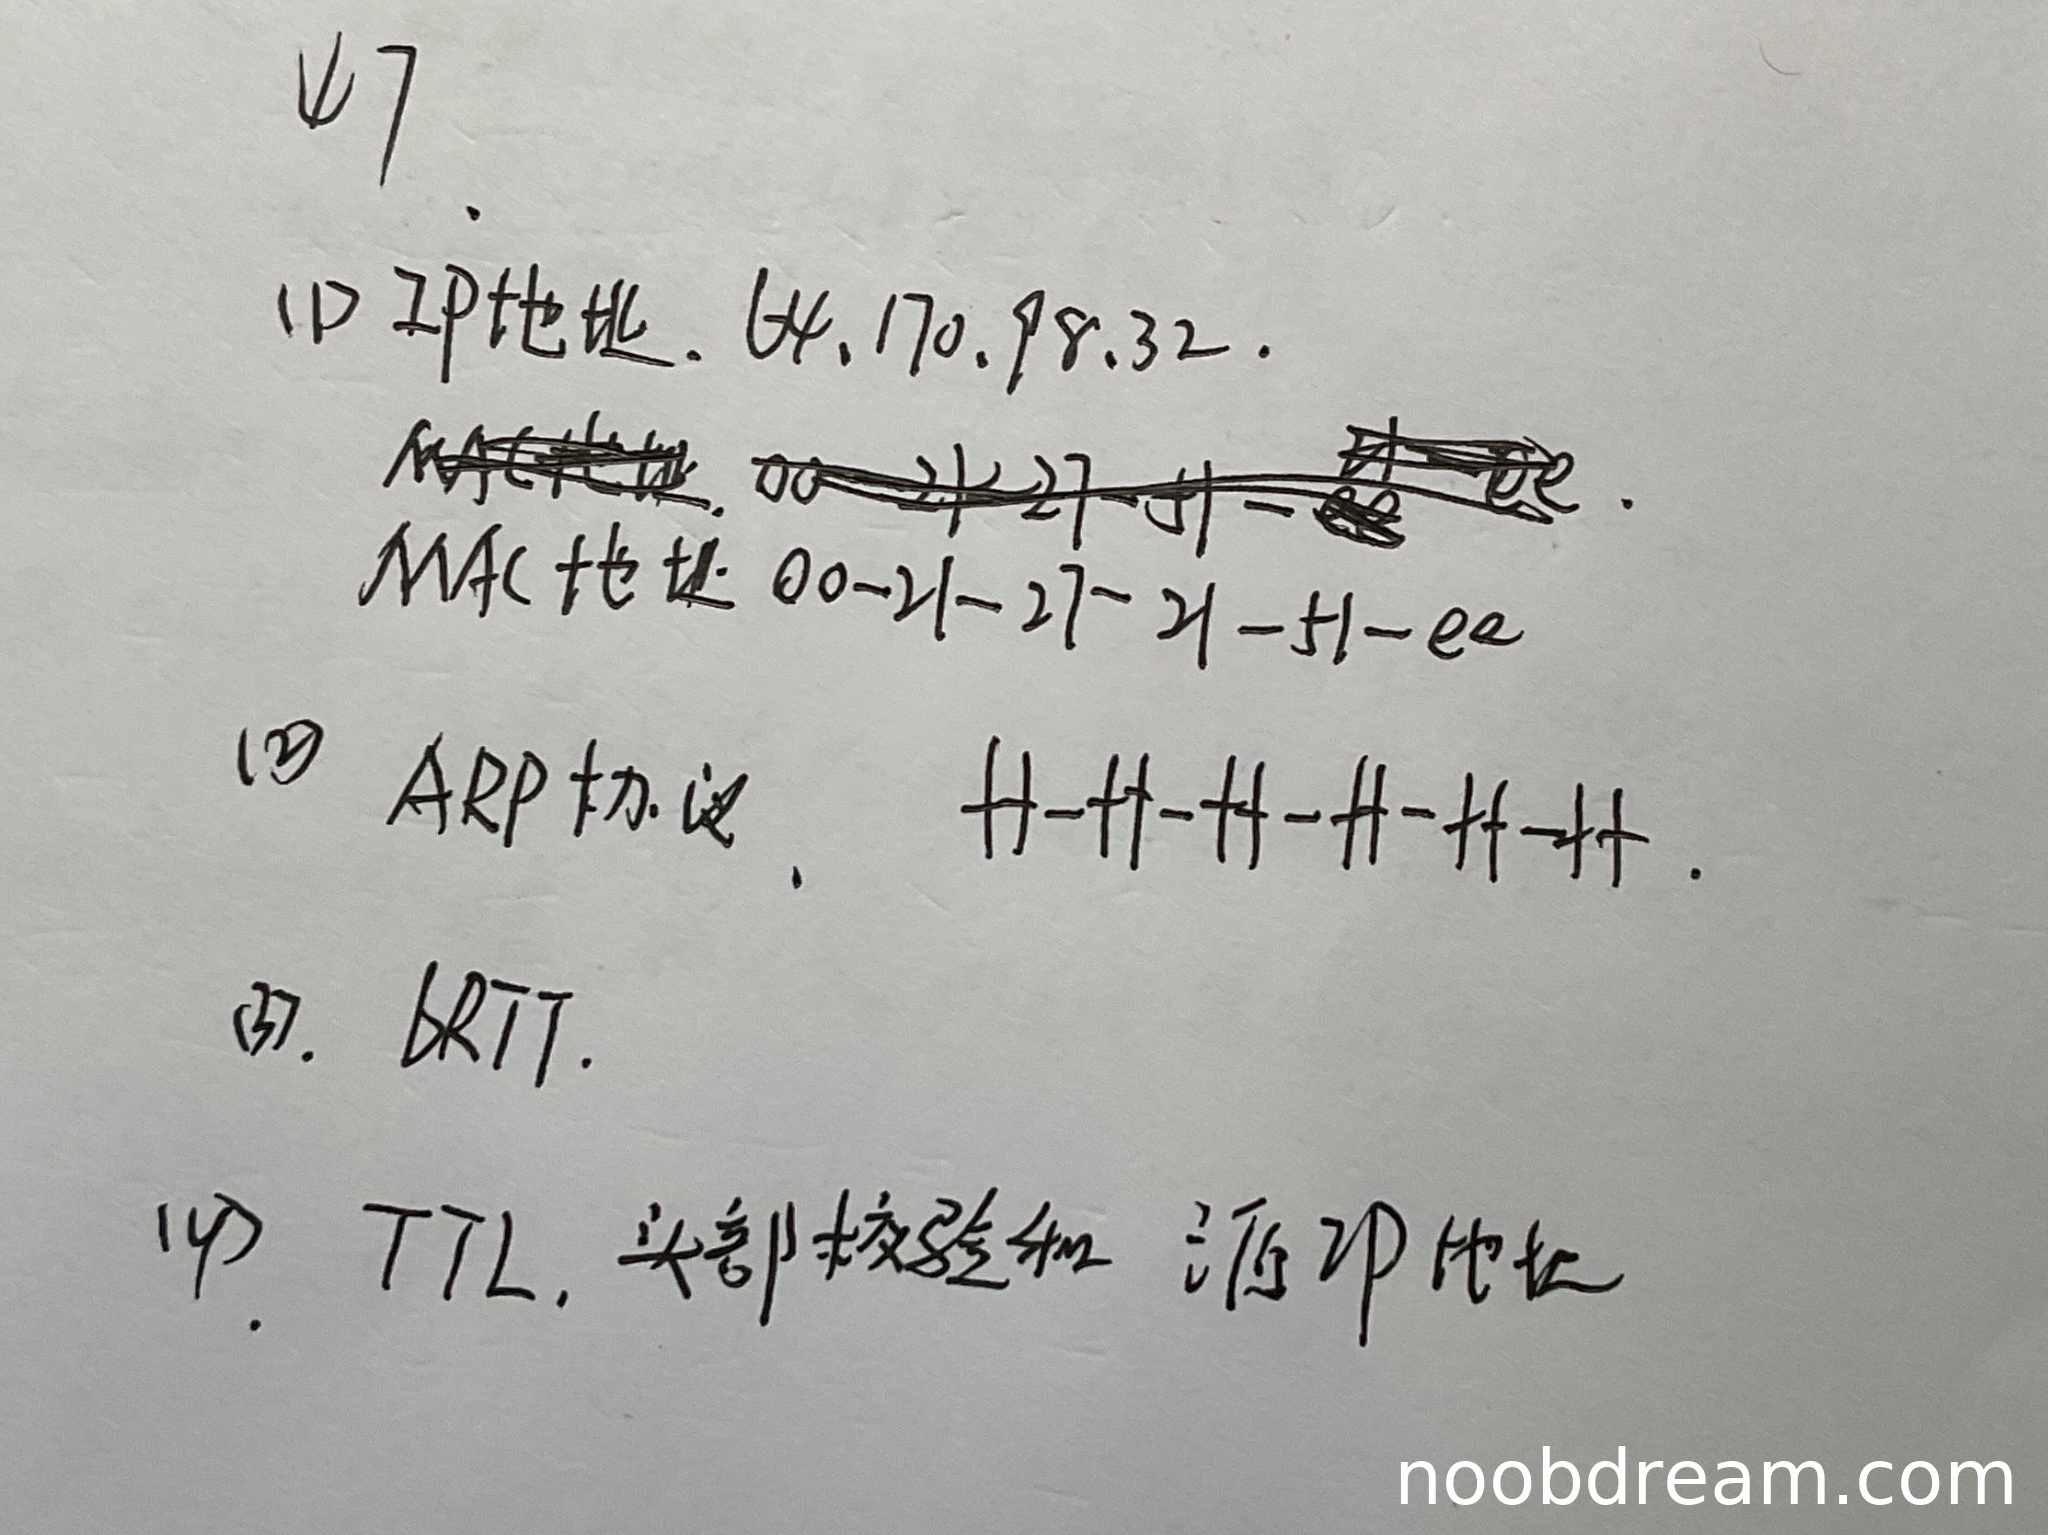 47.
(1) IP地址. 64.170.98.32.
MAC地址. 00-21-27-51-
MAC地址 00-21-27-21-51-ee
(2) ARP协议. ff-ff-ff-ff-ff-ff.
(3). 6RTT.
(4). TTL. 头部校验和 源IP地址
noobdream.com